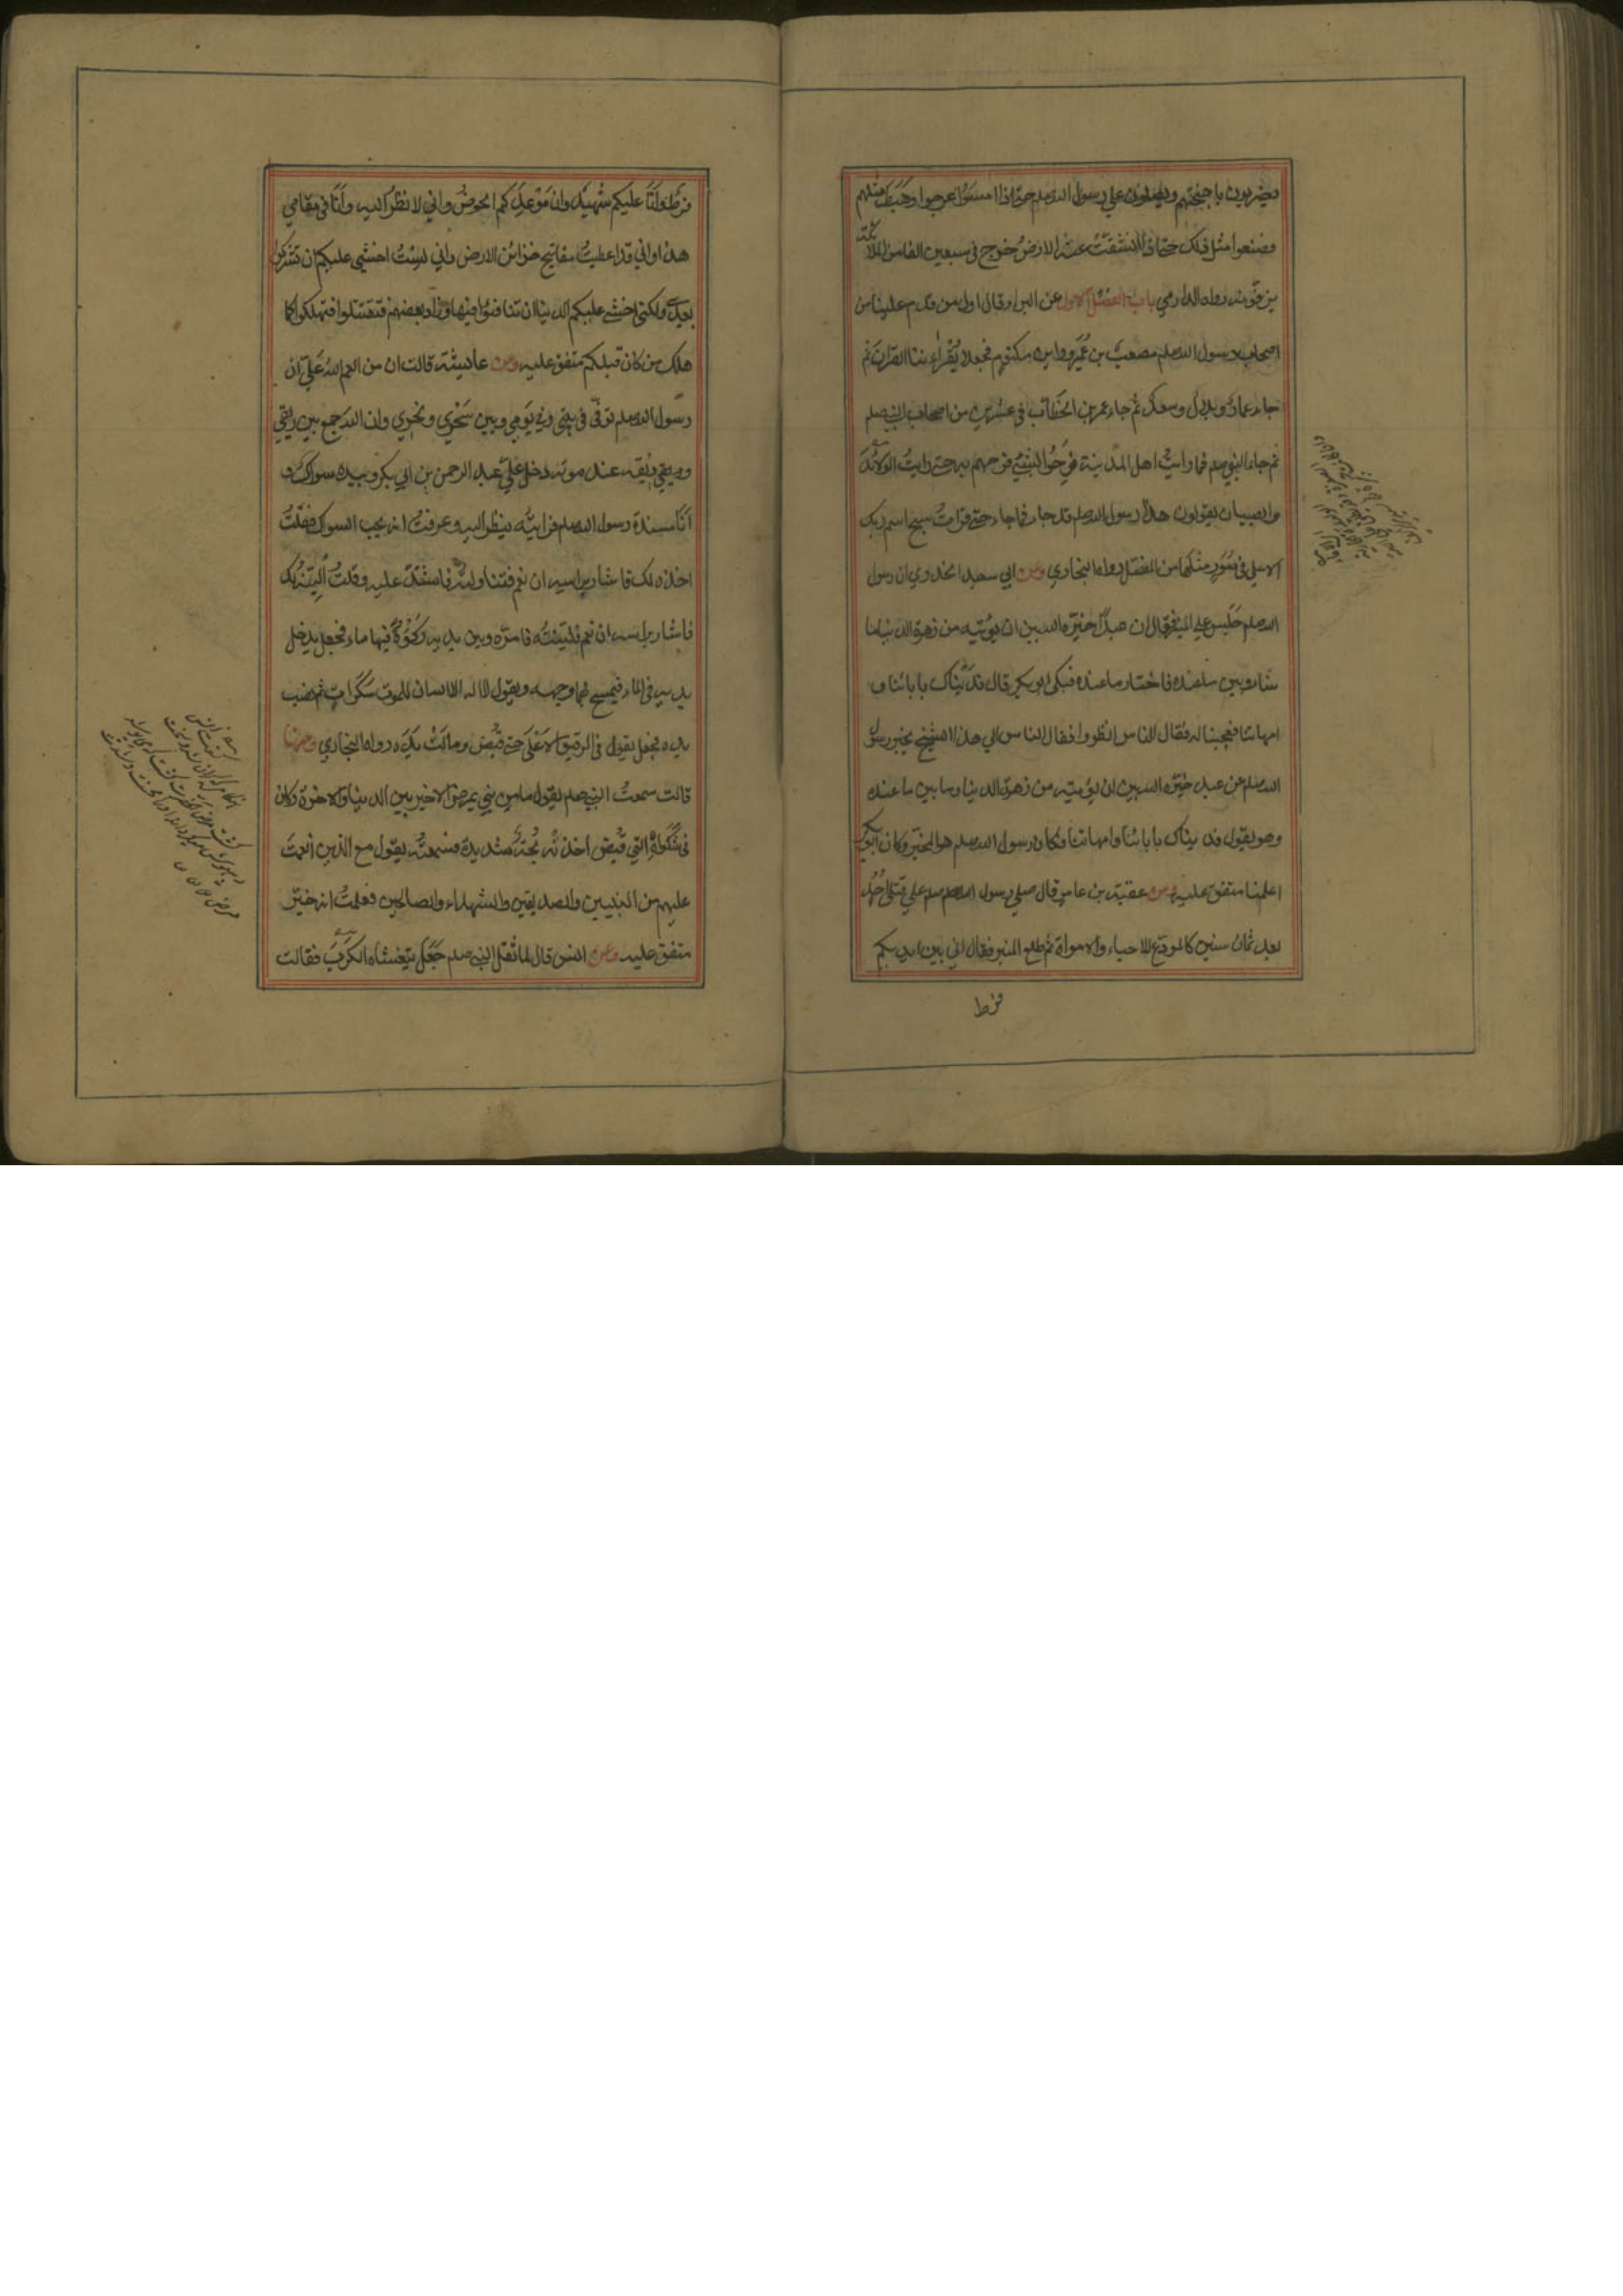 يضربون باجنحتهم ويصلون علي رسول الله صلعم حتي اذا امسوا عرجوا وهبط مثلهم
فصنعوا مثل ذلك حتي اذا انشقت عنه الارض خرج في سبعين الفا من الملائكة
يزفونه رواه الدارمي باب الفصل الاول عن البراء قال اول من قدم علينا من
اصحاب رسول الله صلعم مصعب بن عمير وابن ام مكتوم فجعلا يقرأننا القرآن ثم
جاء عمار وبلال وسعد ثم جاء عمر بن الخطاب في عشرين من اصحاب النبي صلعم
ثم جاء النبي صلعم فما رايت اهل المدينة فرحوا بشيء فرحهم به حتي رايت الولائد
والصبيان يقولون هذا رسول الله صلعم قد جاء فما جاء حتي قرات سبح اسم ربك
الاعلي في سور مثلها من المفصل رواه البخاري وعن ابي سعيد الخدري ان رسول
الله صلعم جلس علي المنبر فقال ان عبدا خيره الله بين ان يؤتيه من زهرة الدنيا ما
شاء وبين ما عنده فاختار ما عنده فبكي ابو بكر قال فديناك بابائنا و
امهاتنا فعجبنا له فقال الناس انظروا فقال الناس الي هذا الشيخ يخبر رسول
الله صلعم عن عبد خيره الله بين ان يؤتيه من زهرة الدنيا وما بين ما عنده
وهو يقول فديناك بابائنا وامهاتنا فكان رسول الله صلعم هو المخير وكان ابو بكر
اعلمنا متفق عليه وعن عقبة بن عامر قال صلي رسول الله صلعم علي قتلي احد
بعد ثمان سنين كالمودع للاحياء والاموات ثم طلع المنبر فقال اني بين ايديكم
فرط
فرط وانا عليكم شهيد وان موعدكم الحوض واني لانظر اليه وانا في مقامي
هذا واني قد اعطيت مفاتيح خزائن الارض واني لست اخشي عليكم ان تشركوا
بعدي ولكني اخشي عليكم الدنيا ان تنافسوا فيها وزاد بعضهم فتقتتلوا فتهلكوا كما
هلك من كان قبلكم متفق عليه وعن عائشة قالت ان من انعم الله علي ان
رسول الله صلعم توفي في بيتي وفي يومي وبين سحري ونحري وان الله جمع بين ريقي
وريقه عند موته دخل علي عبد الرحمن بن ابي بكر وبيده سواك و
انا مسندة رسول الله صلعم فرايته ينظر اليه وعرفت انه يحب السواك فقلت
اخذه لك فاشار براسه ان نعم فتناولته فاشتد عليه وقلت الينه لك
فاشار براسه ان نعم فلينته فامره وبين يديه ركوة فيها ماء فجعل يدخل
يديه في الماء فيمسح بهما وجهه ويقول لا اله الا الله ان للموت سكرات ثم نصب
يده فجعل يقول في الرفيق الاعلي حتي قبض ومالت يده رواه البخاري وعنها
قالت سمعت النبي صلعم يقول ما من نبي يمرض الا خير بين الدنيا والاخرة وكان
في شكواه التي قبض اخذته بحة شديدة فسمعته يقول مع الذين انعمت
عليهم من النبيين والصديقين والشهداء والصالحين فعلمت انه خير
متفق عليه وعن انس قال لما ثقل النبي صلعم جعل يتغشاه الكرب فقالت